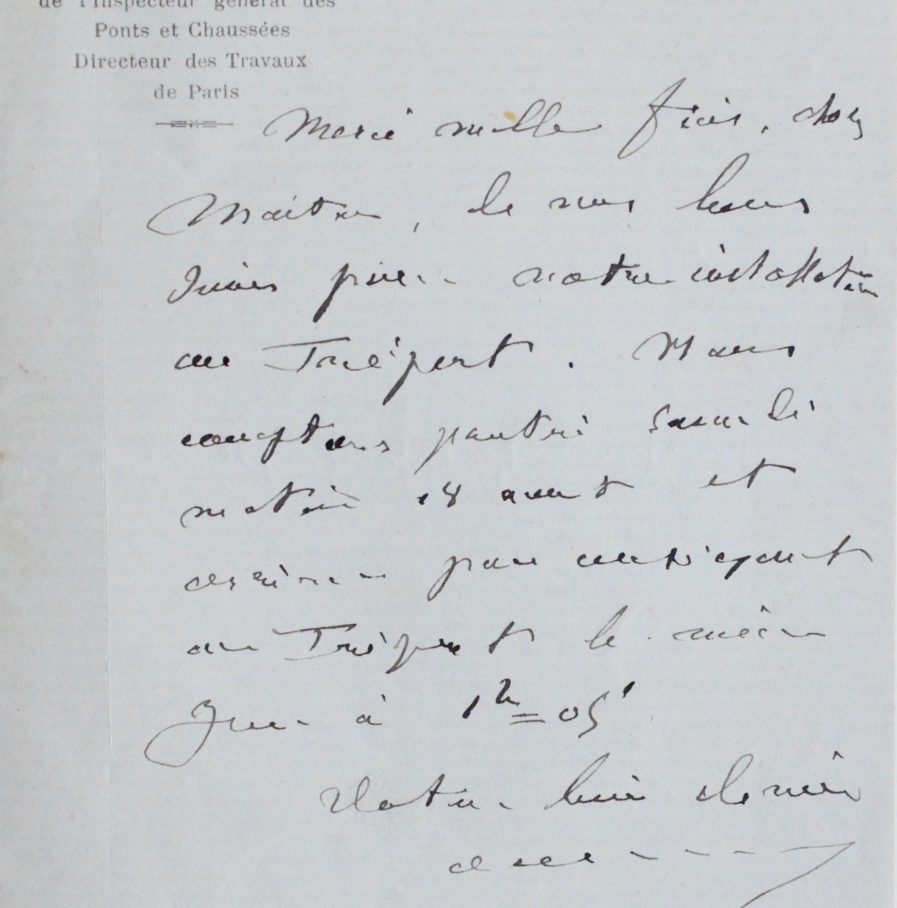 de l'Inspecteur général des
Ponts et Chaussées
Directeur des Travaux
de Paris
Merci mille fois, cher
Maître, de vos bons
soins pour notre installation
au Tréport. Nous
comptons partir samedi
matin 18 aout et
arriver par conséquent
au Tréport le même
jour à 1h=05'
Votre bien dévoué